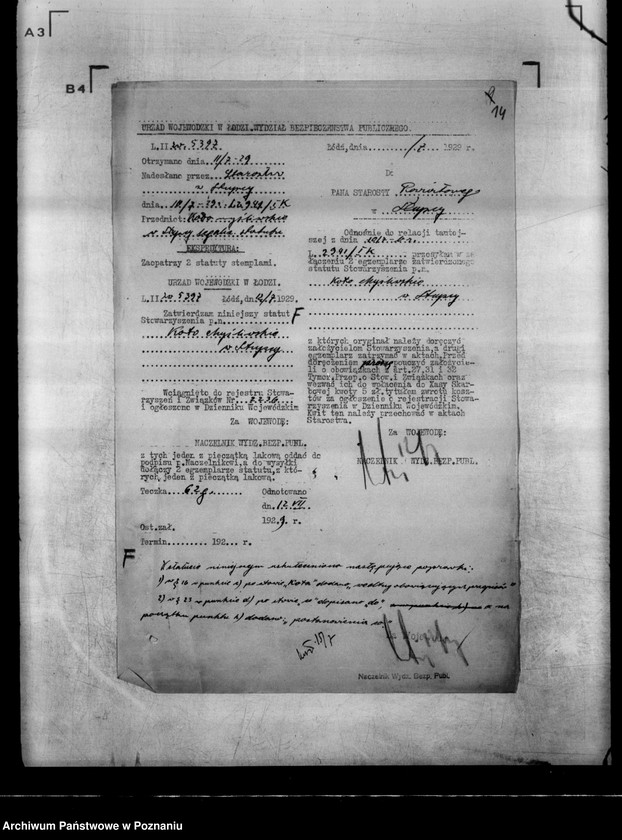 A3
B4
14
URZĄD WOJEWÓDZKI W ŁODZI.WYDZIAŁ BEZPIECZEŃSTWA PUBLICZNEGO.
L.II.zw.5797
dn.
Otrzymano dnia.11/7-29
Nadesłano przez.Starostw
w Słupcy
dnia.
Przedmiot:Koło myśliwskie
w Słupcy
EKSPEDYTURA:
Zaopatrzy 2 statuty stemplami.
URZĄD WOJEWÓDZKI W ŁODZI.
L.II.zw.5797 Łódź,dn.12/7.1929.
Zatwierdzam niniejszy statut
Stowarzyszenia p.n.
Koło Myśliwskie
w Słupcy
Wciągnięto do rejestru Stowa-
rzyszeń i Związków Nr.
i ogłoszono w Dzienniku Wojewódzkim
Za WOJEWODĘ:
NACZELNIK WYDZ.BEZP.PUBL.
z tych jeden z pieczątką lakową oddać do
podpisu p.Naczelnikwi,a do wysyłki
dołączy 2 egzemplarze statutu,z któ-
rych,jeden z pieczątką lakową.
Teczka
Odnotowano
dn.17.VII.
1929. r.
Ost.zał.
Termin......... 192... r.
Łódź,dnia /7 1929 r.
Do
PANA STAROSTY Powiatowego
w Słupcy
Odnośnie do relacji tamtej-
szej z dnia
L.2941/IK przesyłam w za
łączeniu 2 egzemplarze zatwierdzonego
statutu Stowarzyszenia p.n.
Koło Myśliwskie
w Słupcy
z których oryginał należy doręczyć
założycielom Stowarzyszenia,a drugi
egzemplarz zatrzymać w aktach.Przed
doręczeniem proszę pouczyć założycie-
li o obowiązkach z Art.27,31 i 32
Tymcz.Przep.o Stow.i Związkach oraz
wezwać ich do wpłacenia do Kasy Skar-
bowej kwoty 5 zł.tytułem zwrotu kosz-
tów za ogłoszenie o rejestracji Stowa-
rzyszenia w Dzienniku Wojewódzkim.
Kwit ten należy przechować w aktach
Starostwa.
Za WOJEWODĘ:
NACZELNIK WYDZ.BEZP.PUBL.
F
F
W statucie niniejszym uskuteczniono następujące poprawki:
1) w § 16 w punkcie po słowie "Koła" dodano "według obowiązujących przepisów"
2) w § 23 w punkcie d) po słowie dopisano "do", a na
początku punktu dodano: "postanowienia
Za Wojewodę
Naczelnik Wydz. Bezp. Publ.
Archiwum Państwowe w Poznaniu